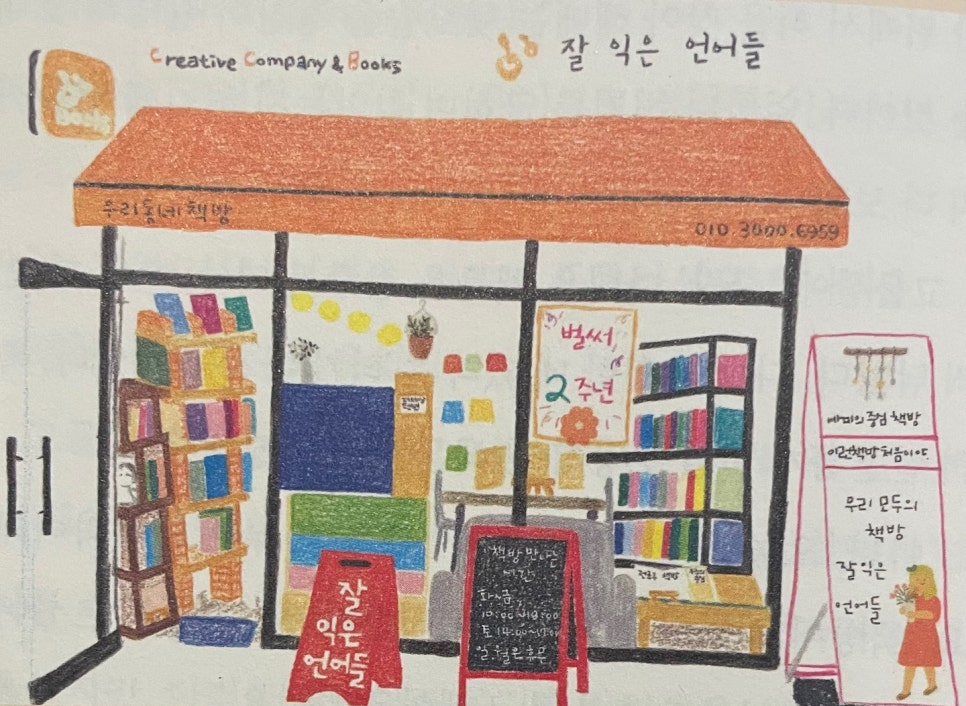 Creative Company & Books
잘 익은 언어들
Book
우리동네책방
010.3000.6959
벌써
2주년
재미의 중심 책방
이런책방 처음이야
우리 모두의
책방
잘 익은
언어들
잘
익은
언어들
책방 만나는
시간
화~금
10:00~18:00
일, 월은 휴무